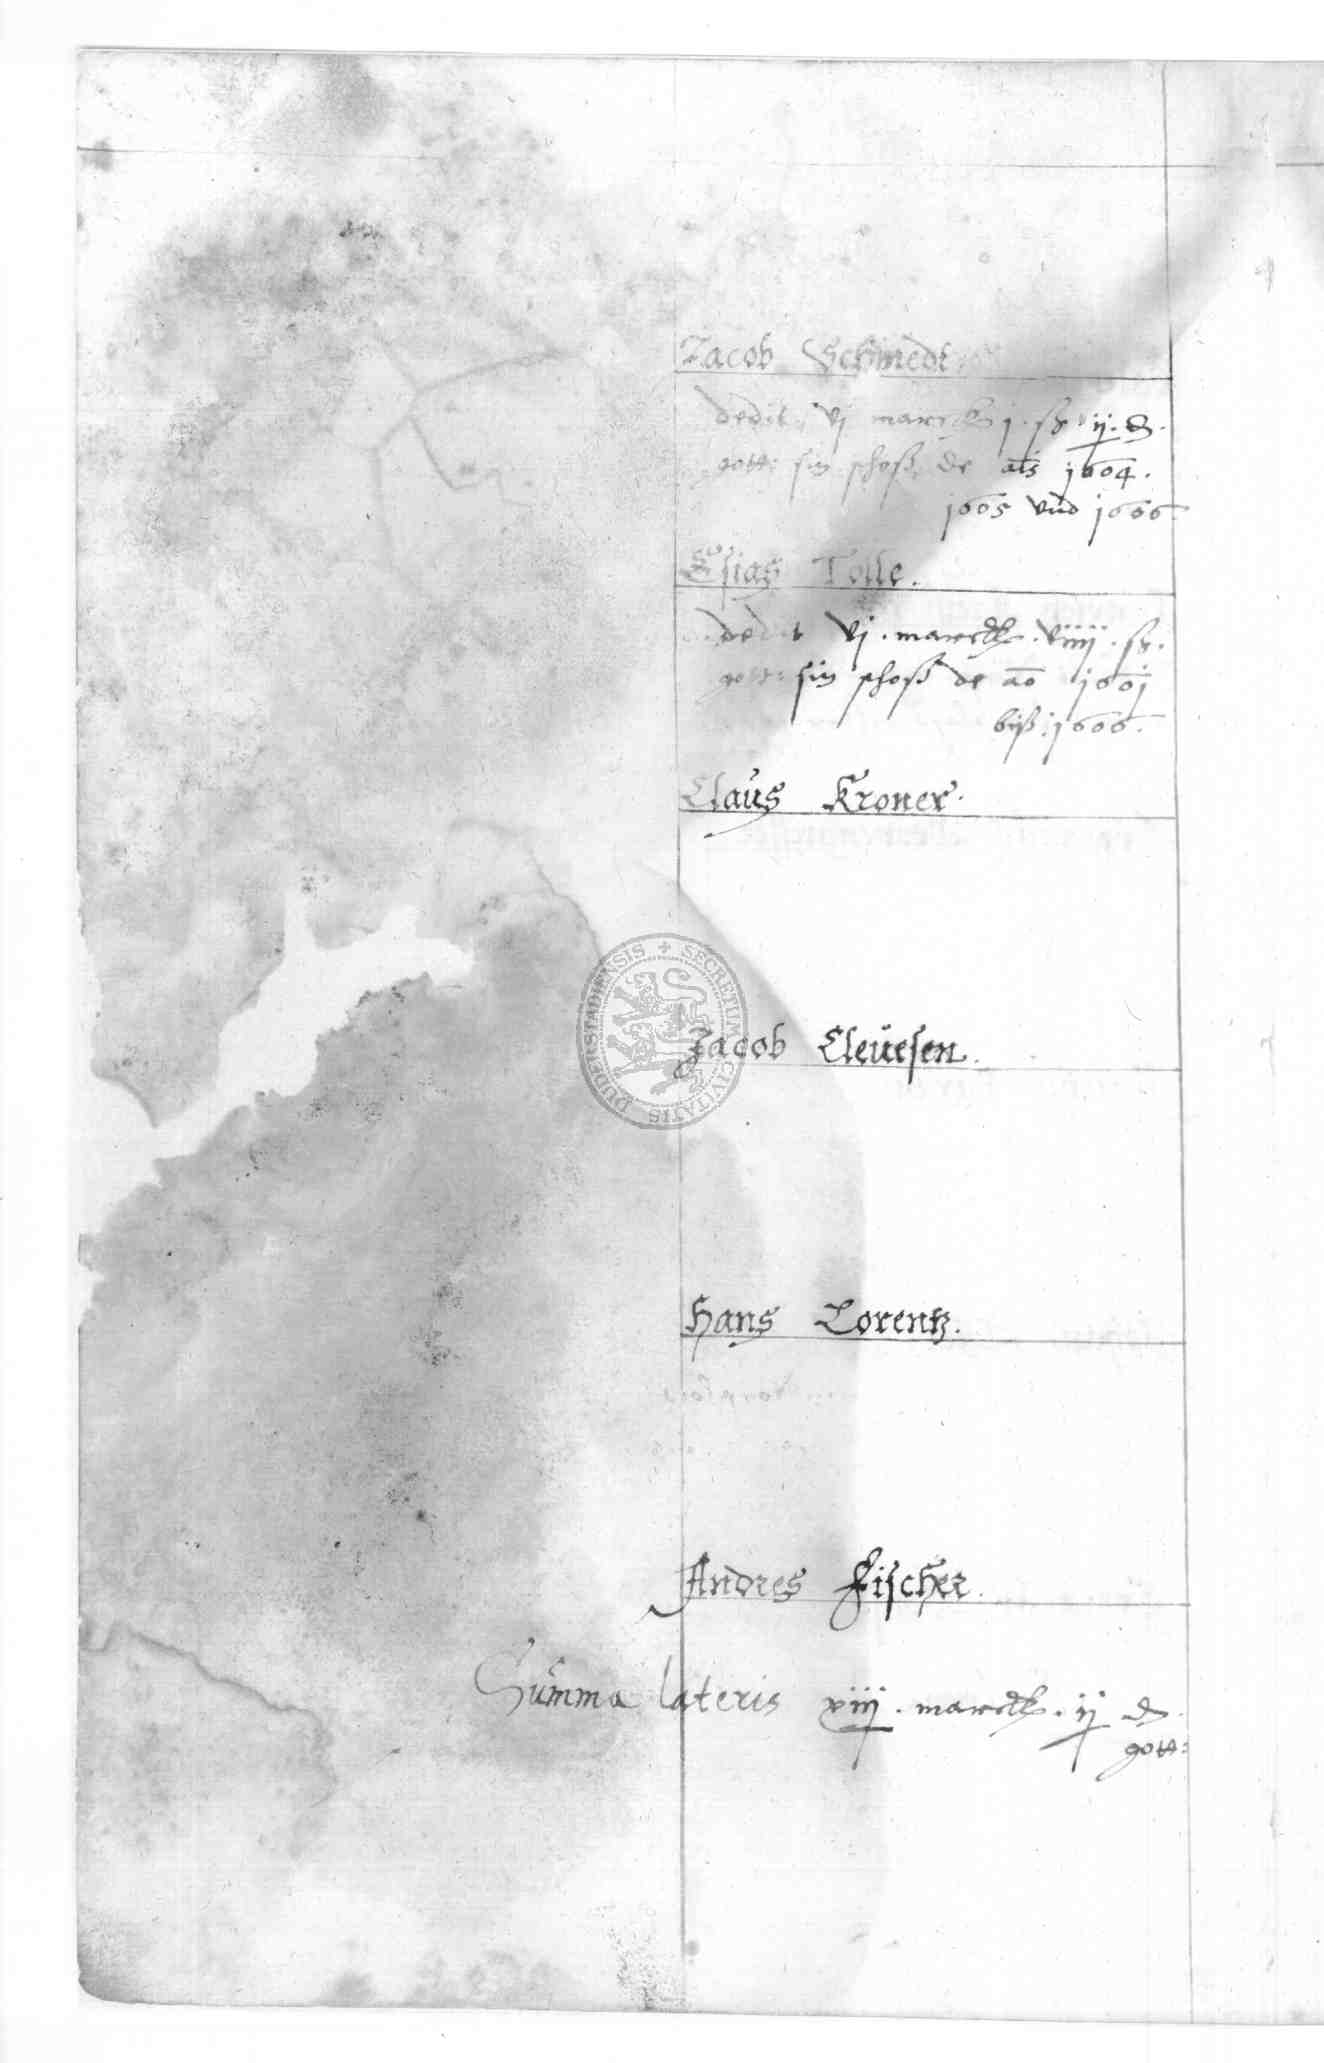 Jacob Schmedt
dedit vj marck j ß ij d
gott: sin schoß de ais 1604.
1605 vnd 1606
Esias Tolle.
dedit vj. marck. viiij. ß.
gott: sin schoß de ao 1601
biß 1606.
Claus Kroner.
SECRETUM CIVITATIS DUDERSTADIENSIS
Jacob Cleuesen.
Hans Lorentz.
Andres Fischer.
Summa lateris viij. marck. ij d
gott: